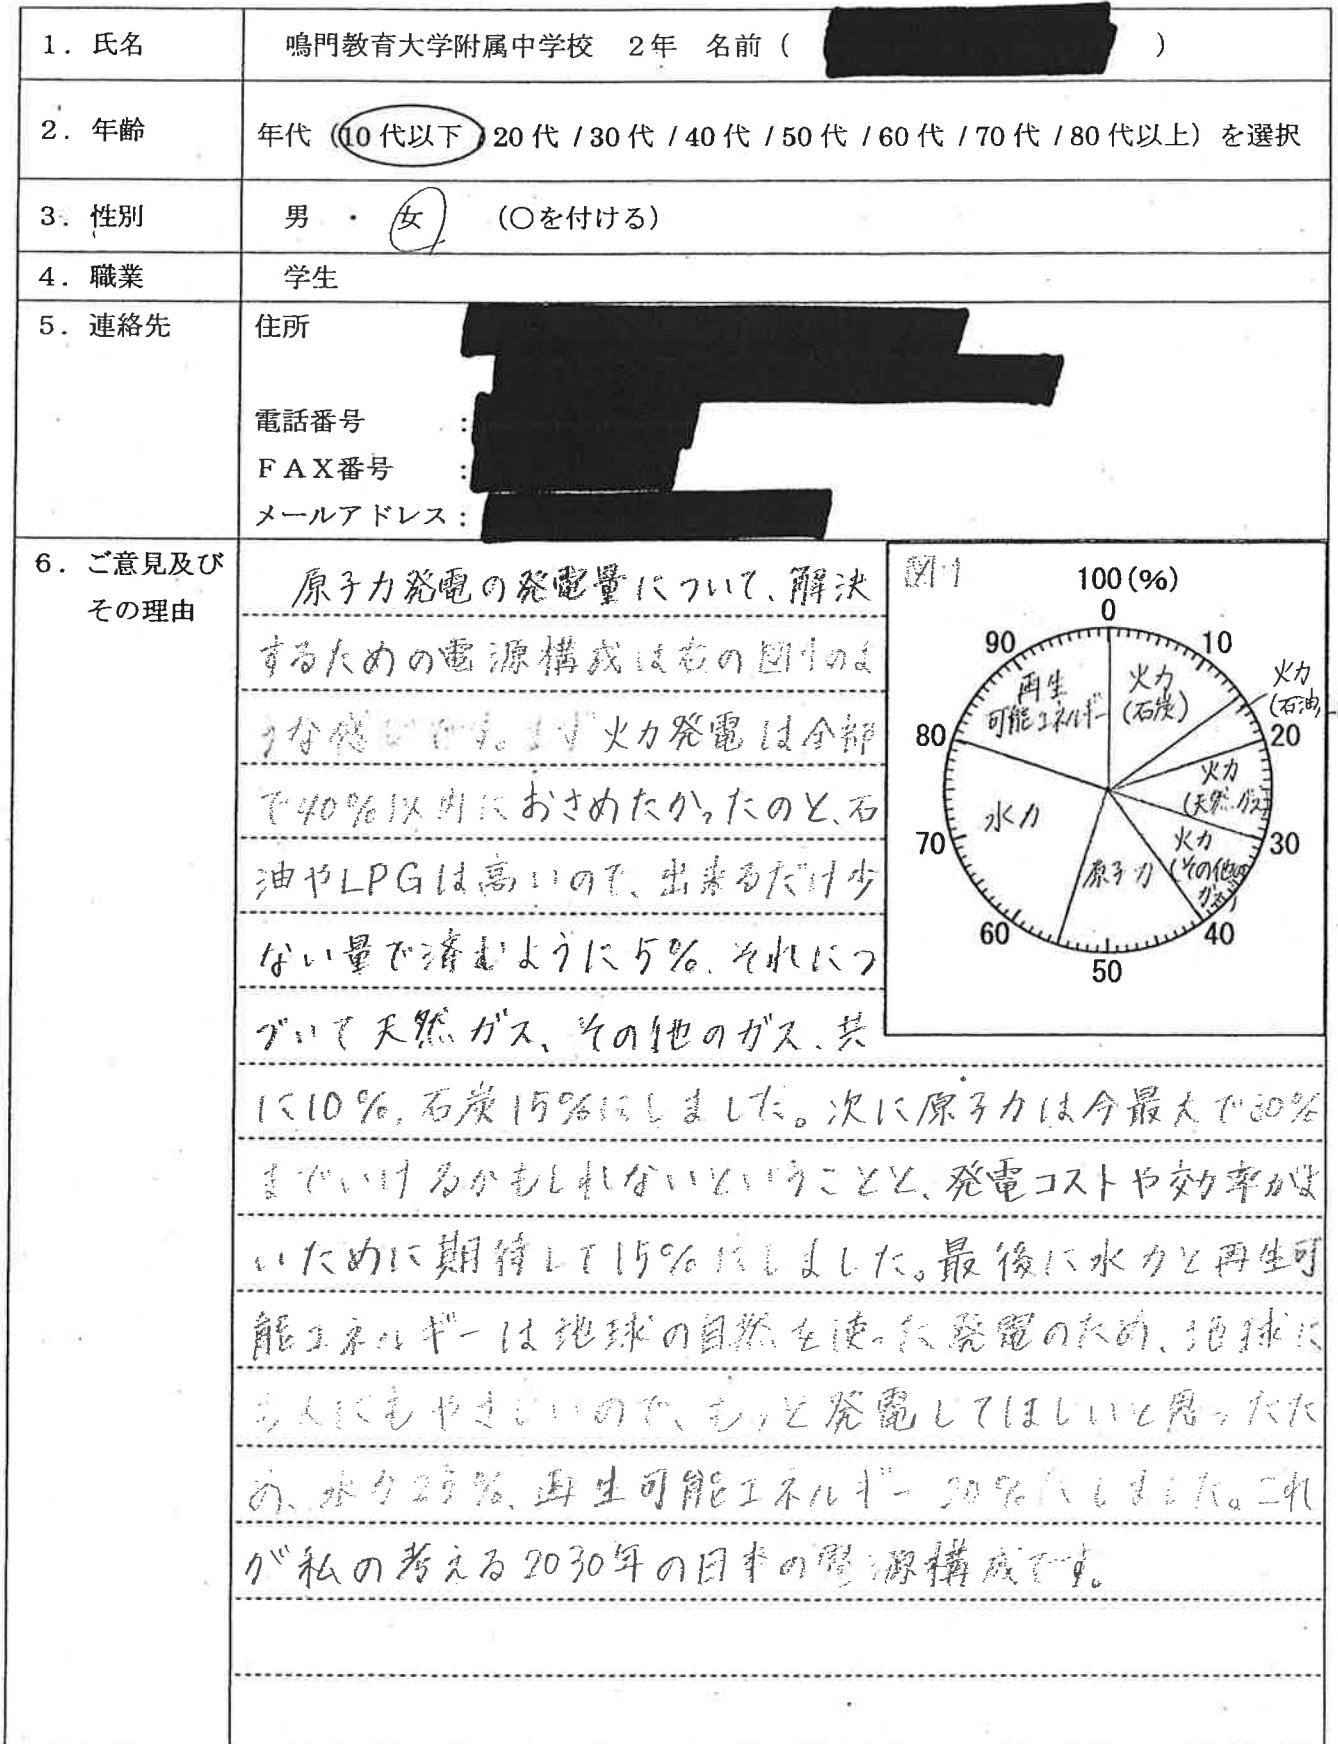 1．氏名
鳴門教育大学附属中学校　2年　名前（　　　）
2．年齢
年代（10代以下 / 20代 / 30代 / 40代 / 50代 / 60代 / 70代 / 80代以上）を選択
3．性別
男　・　女　（○を付ける）
4．職業
学生
5．連絡先
住所
電話番号　：
ＦＡＸ番号　：
メールアドレス：
6．ご意見及び
その理由
原子力発電の発電量について、解決
するための電源構成は右の図1のよ
うな感じです。まず火力発電は全部
で40%以内におさめたかったのと、石
油やLPGは高いので、出来るだけ少
ない量で済むように5%、それにつ
づいて天然ガス、その他のガス、共
に10%、石炭15%にしました。次に原子力は今最大で30%
までいけるかもしれないということと、発電コストや効率がよ
いために期待して15%にしました。最後に水力と再生可
能エネルギーは地球の自然を使った発電のため、地球に
も人にもやさしいので、もっと発電してほしいと思ったた
め、水力25%、再生可能エネルギー20%にしました。これ
が私の考える2030年の日本の電源構成です。
図1
100(%)
0
10
20
30
40
50
60
70
80
90
火力
(石炭)
火力
(石油,
火力
(天然ガス)
火力
(その他の
ガス)
原子力
水力
再生
可能エネルギー